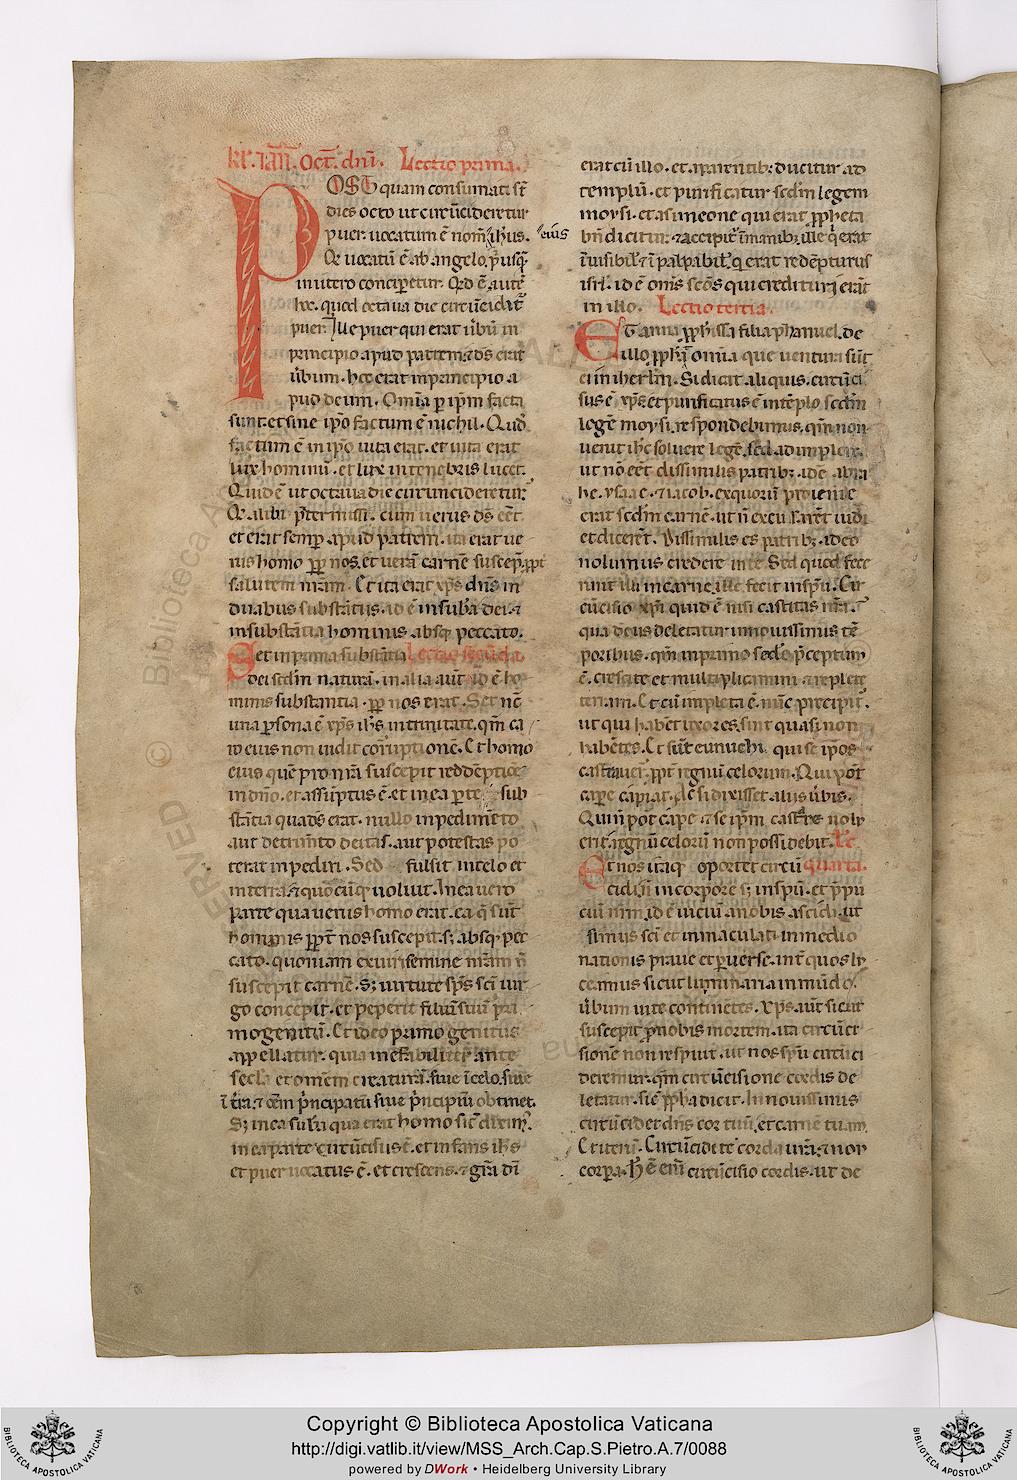 kł. Iañ. Oct̄. dnī. Lectio prima.
POST quam consumati st̄
dies octo ut circūcideretur
puer. uocatum ē nom̄ ihus.
Qr̄ uocatū ē ab angelo, p̄usq̄
in utero conciperetur. Qd ē autē
hec. quod octaua die circūcidat᷑
puer. Ille puer qui erat ūbū in
principio apud patrem. ⁊ ds erat
ūbum. hoc erat in principio a
pud deum. Om̄ia p ip̄m facta
sunt. et sine ip̄o factum ē nichil. Quod
factum ē in ip̄o uita erat. et uita erat
lux hominū. et lux in tenebris lucet.
Quid ē ut octaua die circuncideretur?
Qr̄ alibi p̄termissi. cum uerus ds eēt.
et erat semp apud patrem. ita erat ue
rus homo pp nos. et uerā carnē suscep̄. ppt
salutem nr̄am. Et ita erat xp̄s dn̄s in
duabus substātiis. id ē in sub̄a dei. ⁊
in substātia hominis absq; peccato.
Set in prima substātia Lectio secūda.
dei scd̄m naturā. in alia aūt id ē ho
minis substantia. pp nos erat. Set nc̄
una p̄sona ē xp̄s ih̄s in trinitate. qm̄ ca
ro eius non uidit corruptionē. Et homo
eius quē pro nr̄a suscepit reddēptiōe
in dn̄o. et assūptus ē. et in ea parte sub
stātia quads erat. nullo inpedimēto
aut detrimēto deitas. aut potestas po
terat inpediri. Sed fulsit in celo et
in terra. ⁊ quocūq; uoluit. In ea uero
parte qua uerus homo erat. ea q̄ sūt
hominis ppt nos suscepit. s; absq; pec
cato. quoniam ex uiri semine nr̄am n̄
suscepit carnē. S; uirtute sp̄s sc̄i uir
go concepit. et peperit filiū suū pri
mogenitū. Et ideo primo genitus
appellatur. quia ineffabiliter ante
secla et omēm creaturā. siue ī celo. siue
ī t̄ra. ⁊ oēm p̄ncipatū siue p̄ncipiū obtinet.
S; in ea sub̄a qua erat homo sic̄ diximꝰ.
in ea parte circūcisus ē. et infans ih̄s
et puer uocatus ē. et crescens. ⁊ gr̄a dī
eiūs
erat cū illo. et a parentib; ducitur ad
templū. et purificatur scd̄m legem
moysi. et a simeone qui erat ppheta
bn̄dicitur. ⁊ accepit ī manib; ille q̄ erat
īuisibil᷑ ⁊ ī palpabil᷑. q̄ erat redēpturus
isrl̄. id ē om̄s sc̄os qui credituri erāt
in illo. Lectio tertia.
ET anna pph̄issa filia phanuel. de
illo pph̄ā om̄ia que uentura sūt
ei in iherlm̄. Si dicat aliquis. circūci
sus ē xp̄s. et purificatus ē in tēplo scd̄m
legē moysi. respondebimus. qm̄ non
uenit ih̄c soluere legē. sed adimplere.
ut nō eēt dissimilis patrib;. id ē abra
he. ysaac. ⁊ iacob. ex quorū progenie
erat scd̄m carnē. ut n̄ excusarēt iudi
et dicerēt. Dissimilis es patrib;. ideo
nolumus credere in te. Sed quod fece
runt illi in carne. ille fecit in sp̄u. Cir
cūcisio xp̄i quid ē nisi castitas nr̄a.
qua deus delectatur in nouissimus tē
poribus. qm̄ in primo scd̄o p̄ceptum
ē. crescite et multiplicamini. ⁊ replete
terram. Et cū impleta ē. nūc precipit᷑.
ut qui habēt uxores. sint quasi non
habētes. Et sūt eunuchi. qui se ip̄os
castrauer̄. ppt regnū celorum. Qui pōt
capere capiat. Ac si dixisset aliis ūbis.
Qui n̄ pōt cape. ⁊ se ip̄m castrare nolu
erit. regnū celorū non possidebit. Lc̄
Et nos itaq; oportet circū quarta.
cidi. n̄ in corpore s; in sp̄u. et p̄pu
ciū nr̄m. id ē uiciū a nobis abscidi. ut
simus sc̄i et inmaculati in medio
nationis praue et p̄uerse. int̄ quos lu
ceamus sicut luminaria in mūdo.
ūbum uite continētes. Xp̄s aūt sicut
suscepit p̄ nobis mortem. ita circūci
sionē non respuit. ut nos sp̄u circūci
deremur. qm̄ circūcisione cordis de
letatur. sic̄ pph̄a dicit. In nouissimis
circūcidet dn̄s cor tuū. et carnē tuam.
Et iterū. Circūcidete corda ur̄a. ⁊ non
corpora. H̄ ē enī circūcisio cordis. ut de
Copyright © Biblioteca Apostolica Vaticana
http://digi.vatlib.it/view/MSS_Arch.Cap.S.Pietro.A.7/0088
powered by DWork • Heidelberg University Library
BIBLIOTECA APOSTOLICA VATICANA
BIBLIOTECA APOSTOLICA VATICANA